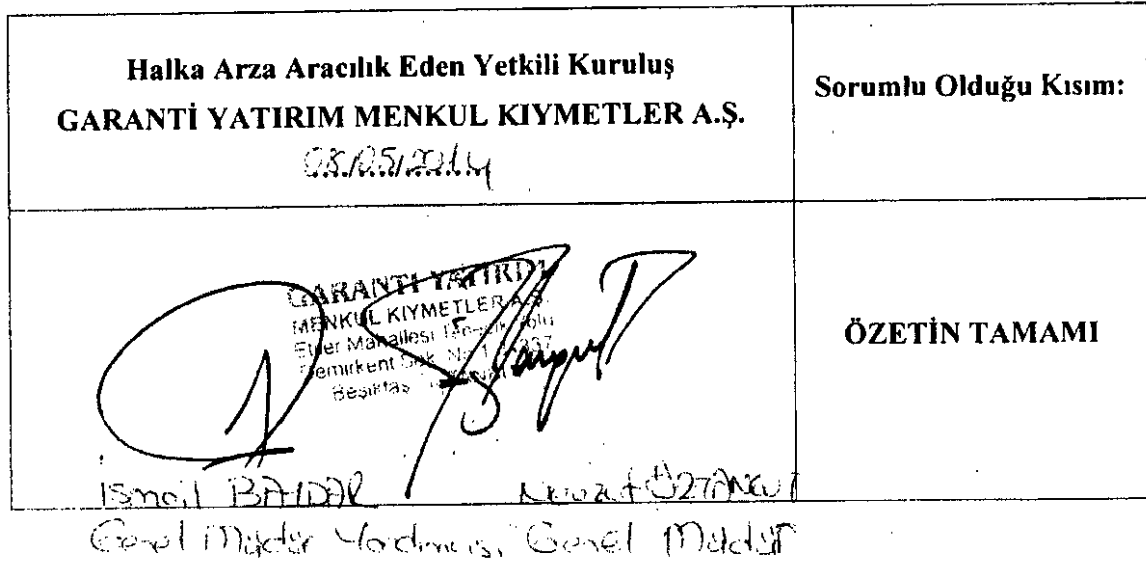 Halka Arza Aracılık Eden Yetkili Kuruluş
GARANTİ YATIRIM MENKUL KIYMETLER A.Ş.
08/05/2014
Sorumlu Olduğu Kısım:
GARANTI YATIRIM
MENKUL KIYMETLER A.Ş.
Mahallesi
Demirkent Sok. No:1
Beşiktaş
ÖZETİN TAMAMI
İsmail
Genel Müdür Yardımcısı, Genel Müdür